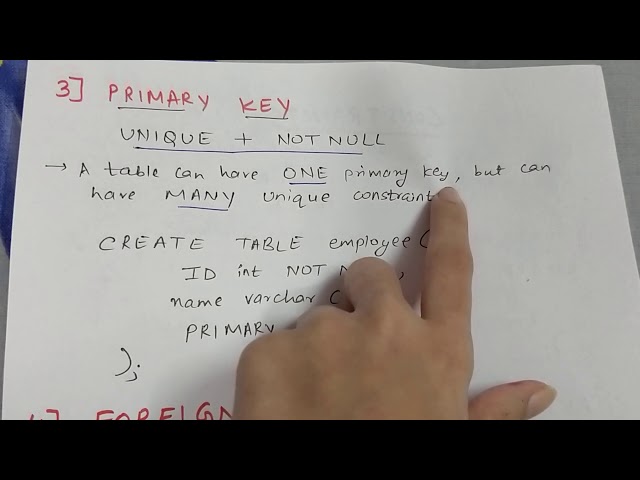 3] PRIMARY KEY
UNIQUE + NOT NULL
→ A table can have ONE primary key, but can
have MANY unique constraint
CREATE TABLE employee (
ID int NOT ,
name varchar (
PRIMARY
);
FOREIGN